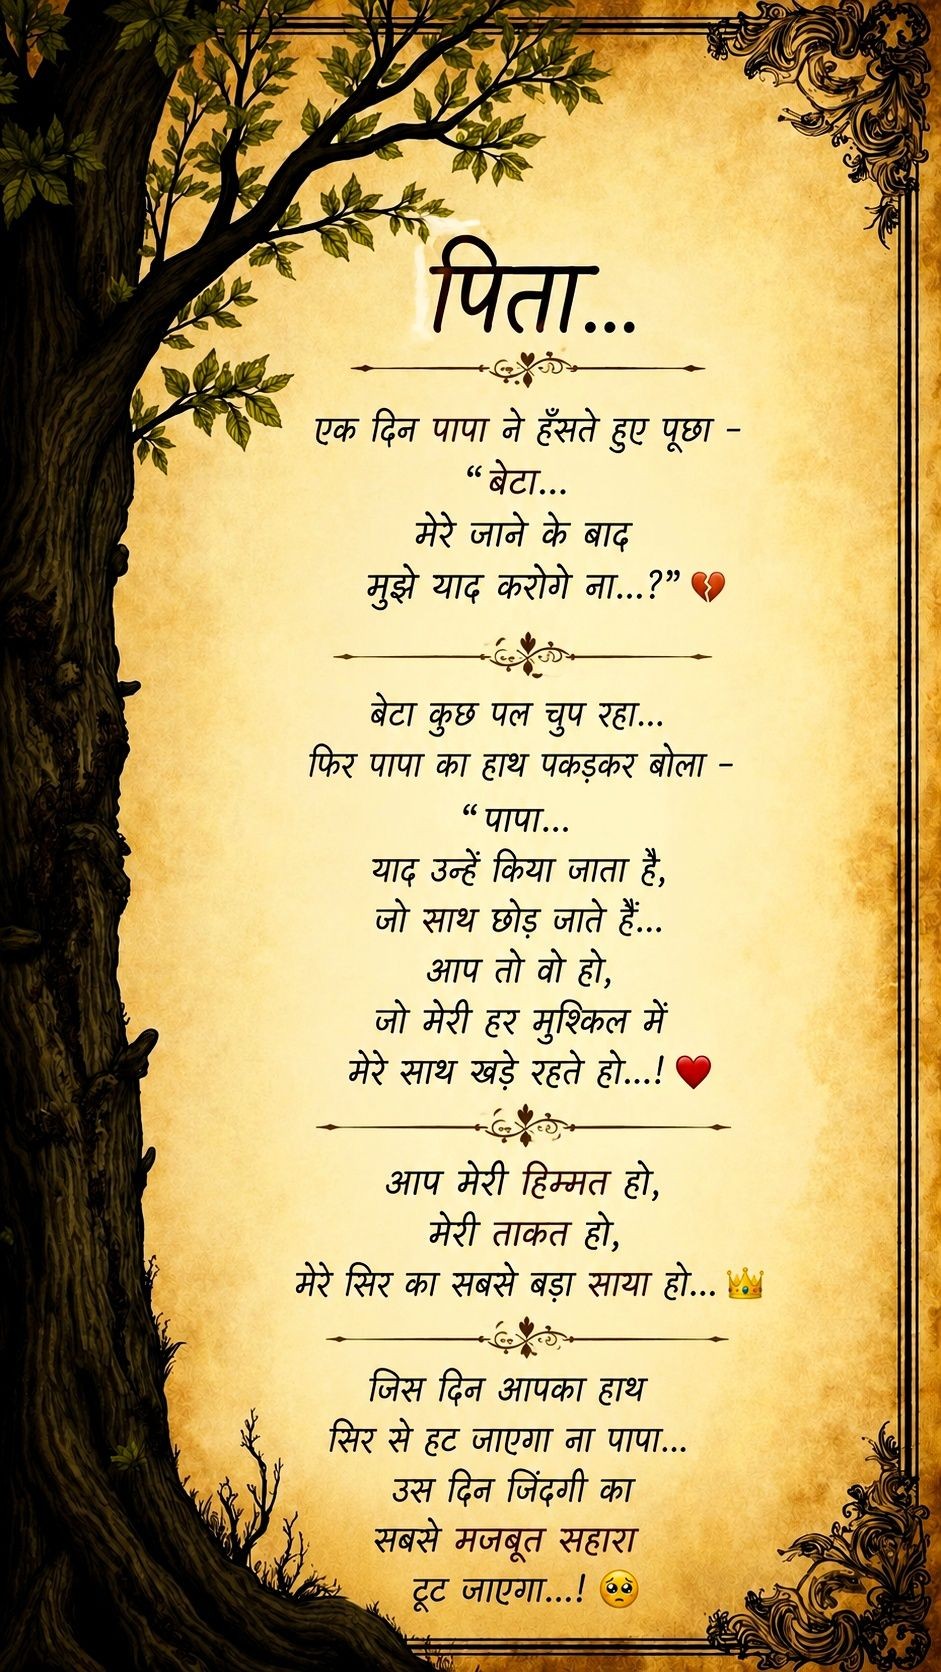 पिता...
एक दिन पापा ने हँसते हुए पूछा -
“बेटा...
मेरे जाने के बाद
मुझे याद करोगे ना...?” 💔
बेटा कुछ पल चुप रहा...
फिर पापा का हाथ पकड़कर बोला -
“पापा...
याद उन्हें किया जाता है,
जो साथ छोड़ जाते हैं...
आप तो वो हो,
जो मेरी हर मुश्किल में
मेरे साथ खड़े रहते हो...! ❤️
आप मेरी हिम्मत हो,
मेरी ताकत हो,
मेरे सिर का सबसे बड़ा साया हो... 👑
जिस दिन आपका हाथ
सिर से हट जाएगा ना पापा...
उस दिन जिंदगी का
सबसे मजबूत सहारा
टूट जाएगा...! 🥺